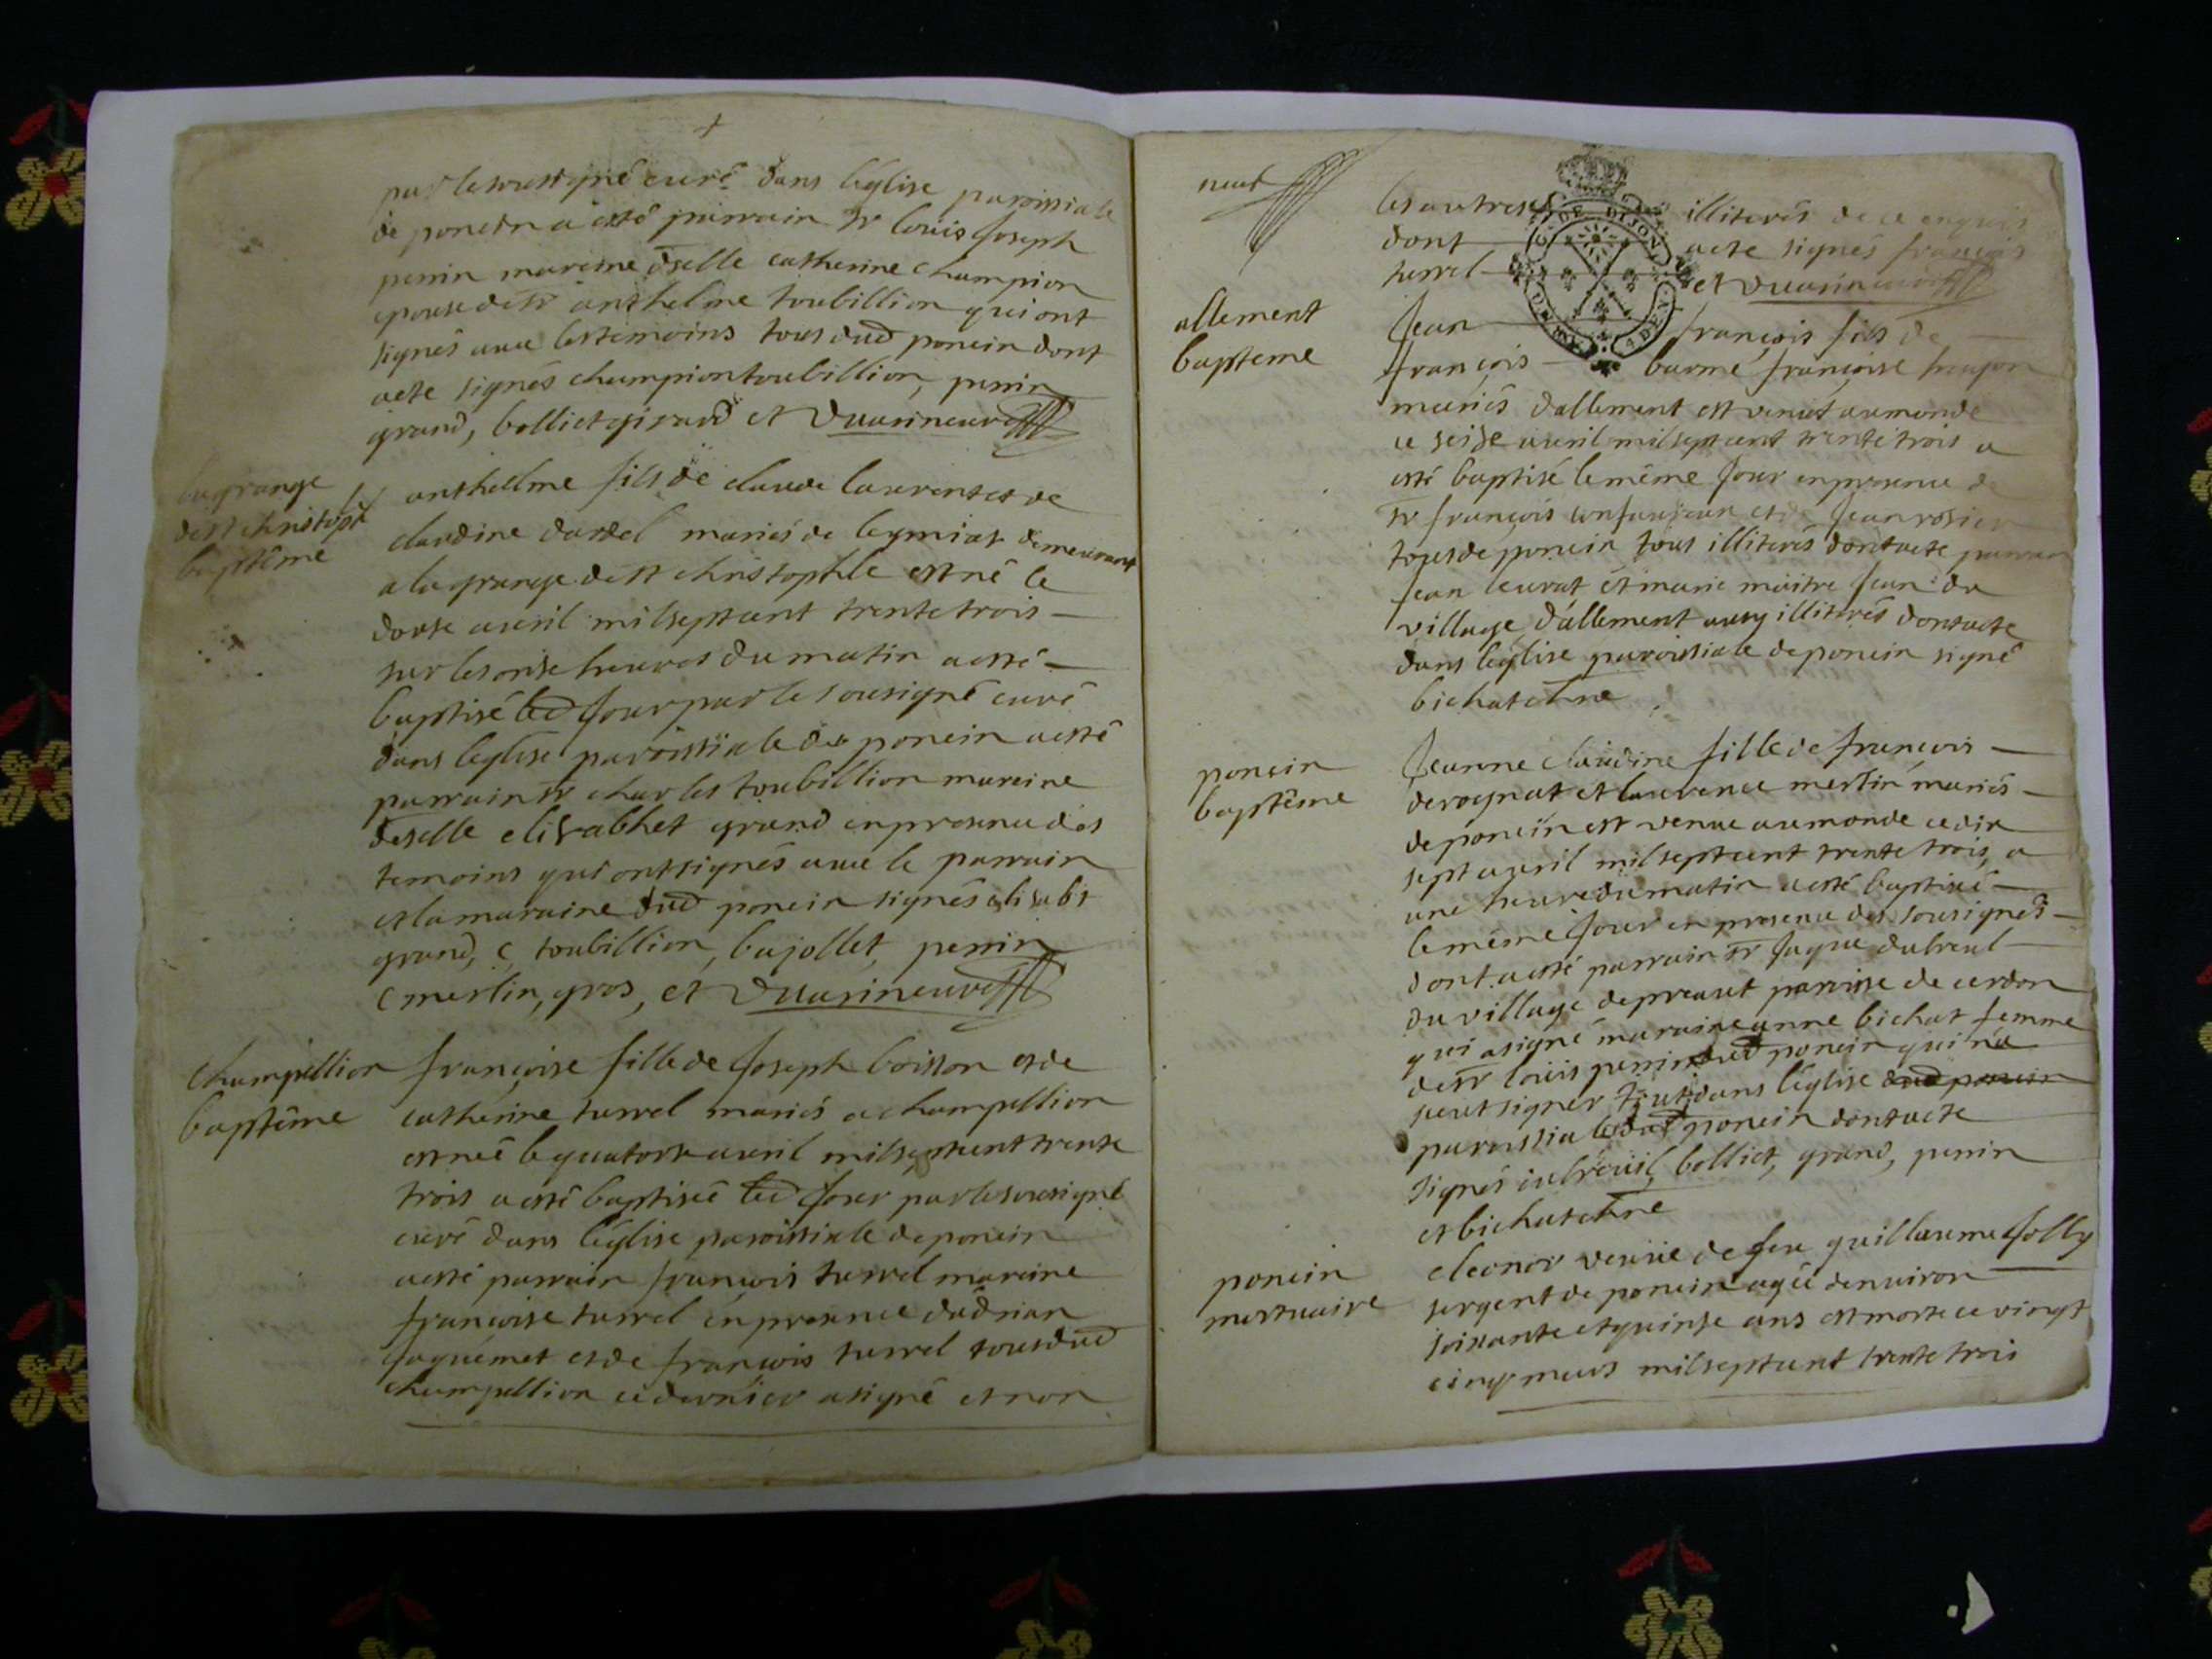 +
par le sousigné curé dans l'église paroissiale
de poncin a esté parrain sr louis joseph
perrin mareine dselle catherine champion
epouse de sr anthelme toubillion qui ont
signés avec les temoins tous dud poncin dont
acte signés champion toubillion, perrin
grand, bolliet girard et curé
lagrange
de st christophe
baptême
anthelme fils de claude laurent et de
claudine dardel mariés de leymiat demeurant
a la grange de st christophle est né le
douse avril mil sept cent trente trois
sur les onse heures du matin a esté
baptisé led jour par le sousigné curé
dans l'eglise paroissiale de poncin a esté
parrain sr charles toubillion mareine
deselle elisabhet grand en presence des
temoins qui ont signés avec le parrain
et la maraine dud poncin signés elisabt
grand, c, toubillion, bajollet, perrin
c merlin, gros, et curé
Champellion
baptême
françoise fille de joseph boisson et de
catherine turrel mariés a champellion
est née le quatorse avril mil sept cent trente
trois a esté baptisée led jour par le sousigné
curé dans l'église paroissiale de poncin
a esté parrain francois turrel mareine
françoise turrel en presence d'adrian
jaquemet et de francois turrel tous dud
champellion ce dernier a signé et non
neuf
les autres illiterés de ce enquis
dont acte signés françois
turrel et curé
G. DE DIJON
allement
bapteme
Jean françois fils de
françois barme françoise
mariés d'allement est venut au monde
ce seise avril mil sept cent trente trois a
esté baptisé le même jour en presence de
sr françois et de jean rosier
tous de poncin tous illiterés dont acte parrain
jean leurat et marie maitre jean du
village d'allement aussy illiterés dont acte
dans l'église paroissiale de poncin signé
bichat
poncin
baptême
Jeanne claudine fille de francois
derognat et laurence merlin mariés
de poncin est venue au monde ce dix
sept avril mil sept cent trente trois, a
une heure du matin a esté baptisée
le même jour en presence des sousignés
dont a esté parrain sr jaque dubreul
du village de preaut paroisse de cerdon
qui a signé maraine anne bichat femme
de sr louis perrin dud poncin qui n'a
sceut signer tout dans l'église dud poncin
paroissiale dud poncin dont acte
signés bolliet, grand, perrin
et bichat
poncin
mortuaire
eleonor veuve de feu guillaume jolly
sergent de poncin agée d'environ
soixante et quinse ans est morte ce vingt
cinq mars mil sept cent trente trois